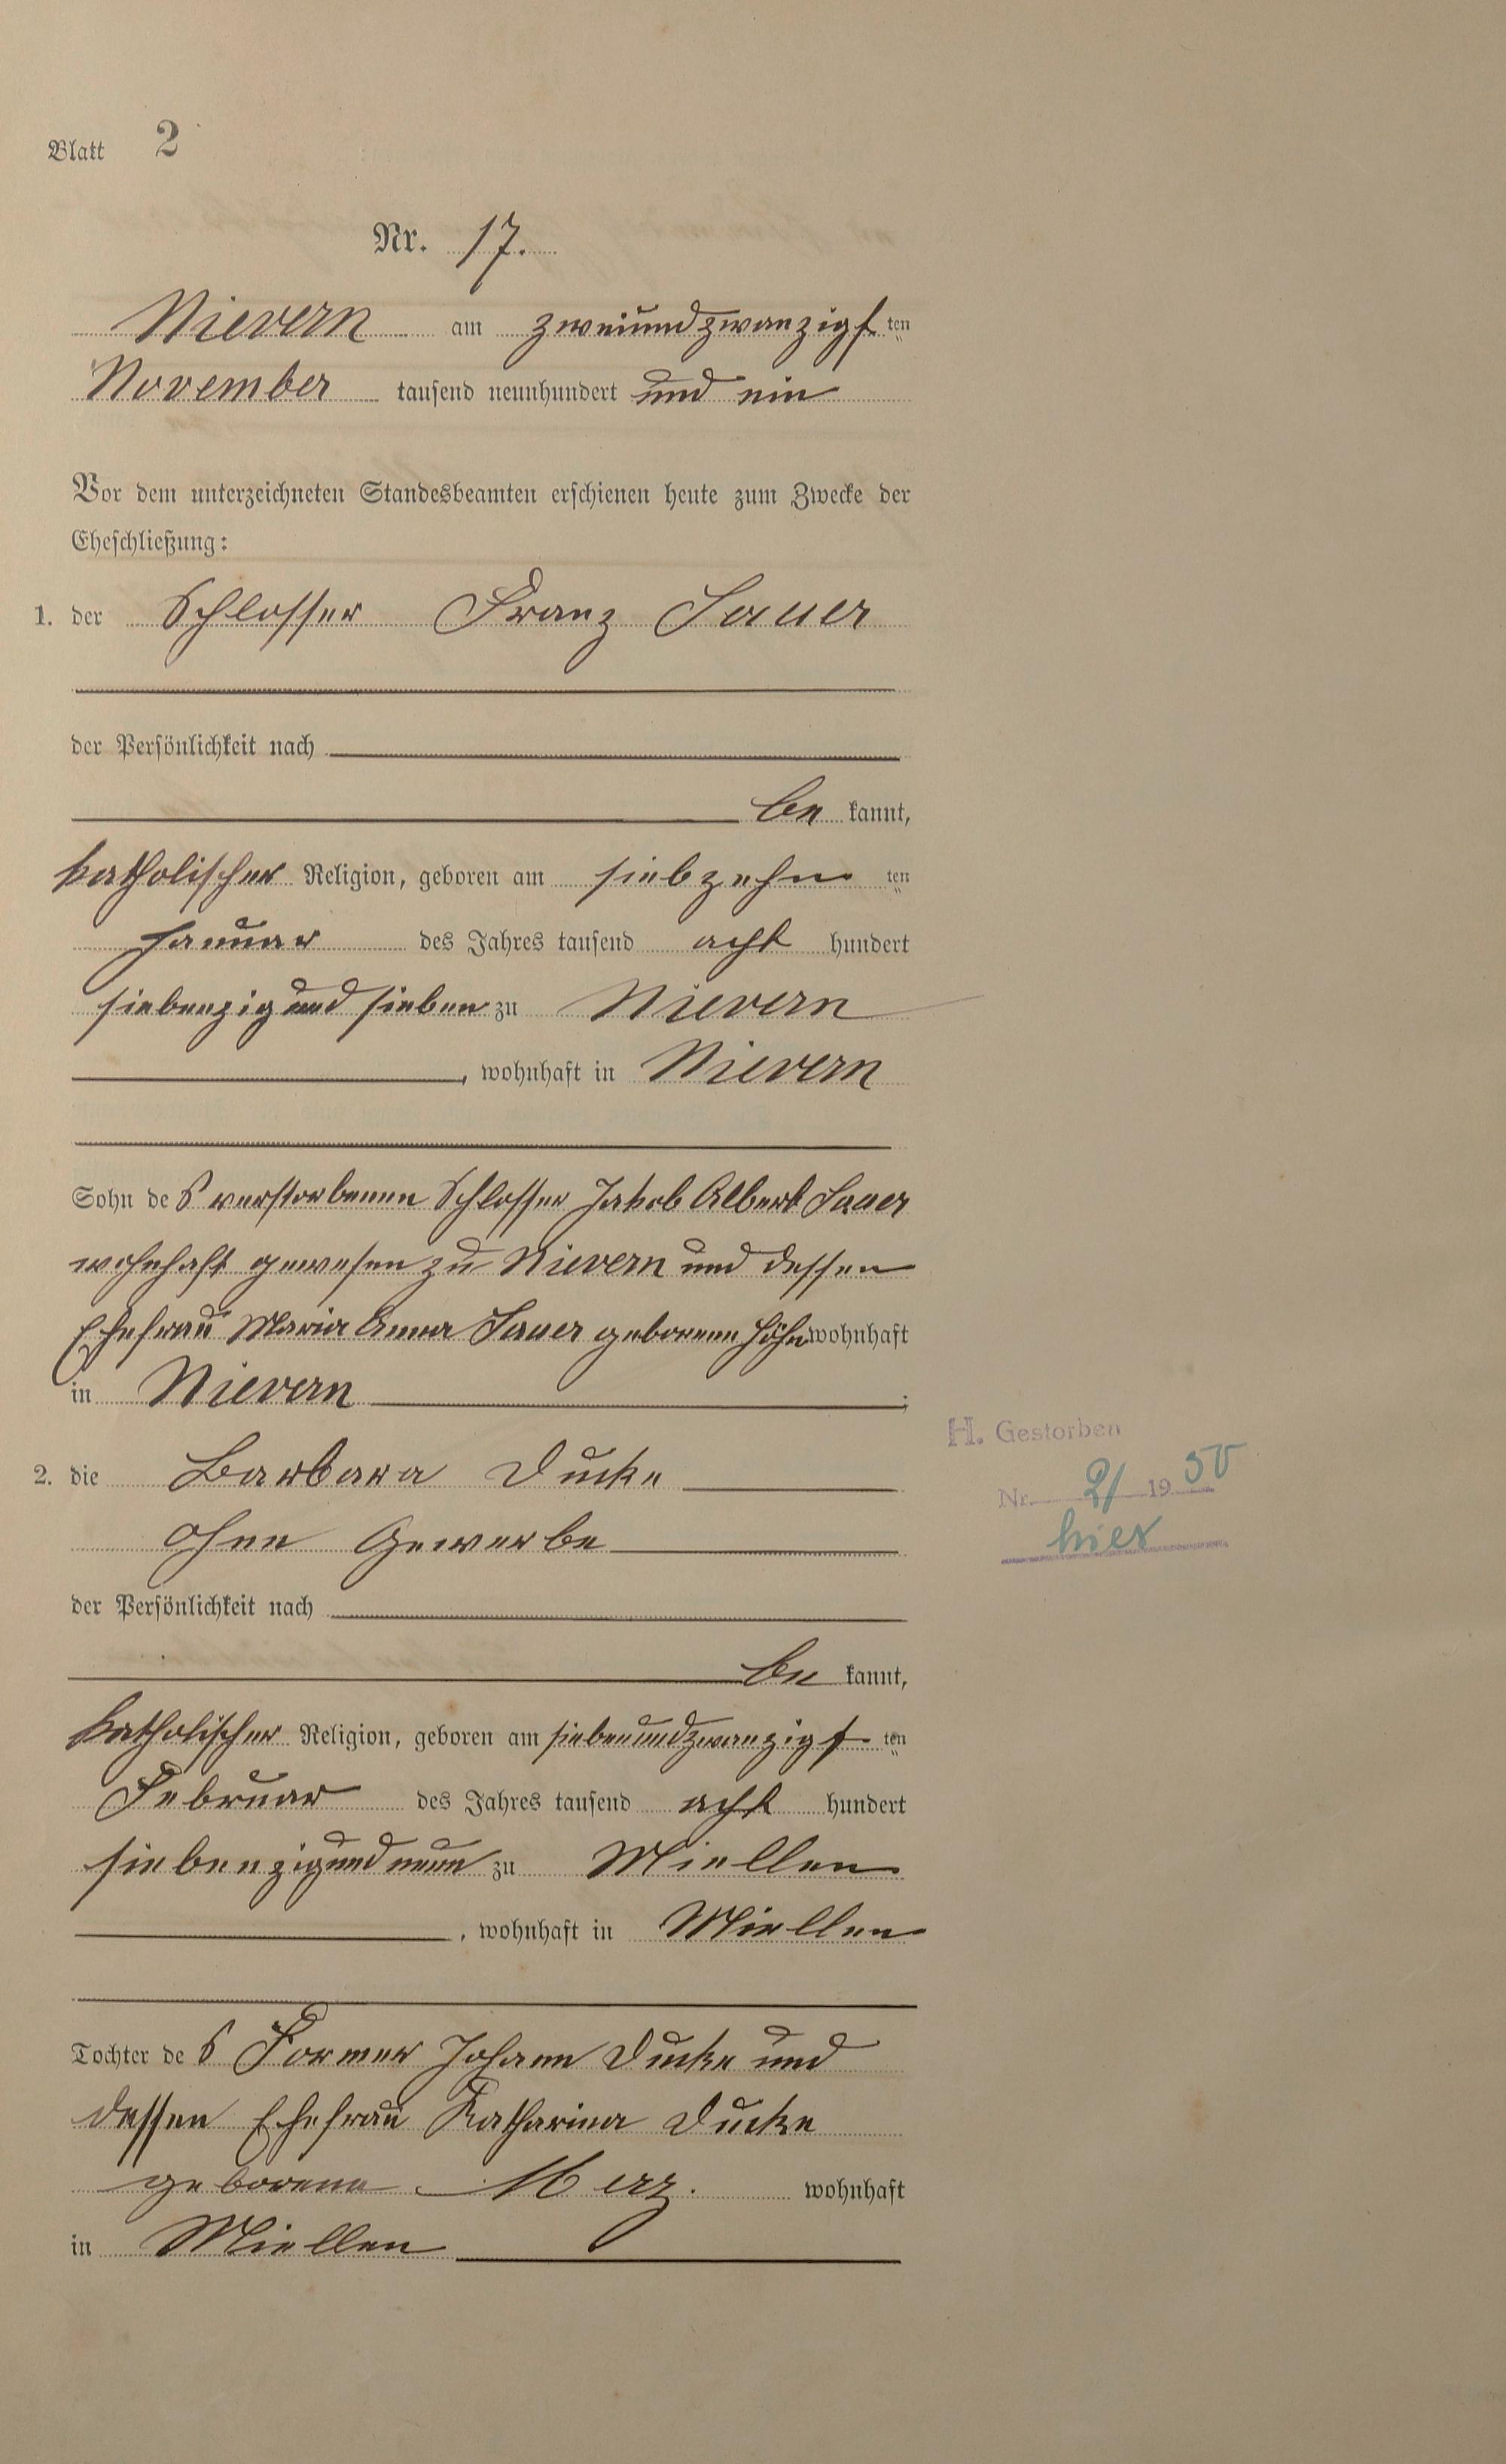 Blatt 2
Nr. 17.
Nievern am zweiundzwanzigsten
November tausend neunhundert und ein
Vor dem unterzeichneten Standesbeamten erschienen heute zum Zwecke der
Eheschließung:
1. der Schlosser Franz Sauer
der Persönlichkeit nach
be kannt,
katholischer Religion, geboren am siebzehn ten
Januar des Jahres tausend acht hundert
siebenzig und sieben zu Nievern
, wohnhaft in Nievern
Sohn des verstorbenen Schlosser Jakob Albert Sauer
wohnhaft gewesen zu Nievern und dessen
Ehefrau Maria Anna Sauer geborene Höhn wohnhaft
in Nievern ;
2. die Barbara Ducke
ohne Gewerbe
der Persönlichkeit nach
be kannt,
katholischer Religion, geboren am siebenundzwanzigsten
Februar des Jahres tausend acht hundert
siebenzig und neun zu Miellen
, wohnhaft in Miellen
Tochter des Former Johann Ducke und
dessen Ehefrau Katharina Ducke
geborene Merz. wohnhaft
in Miellen
H. Gestorben
Nr. 2/ 1950
hier